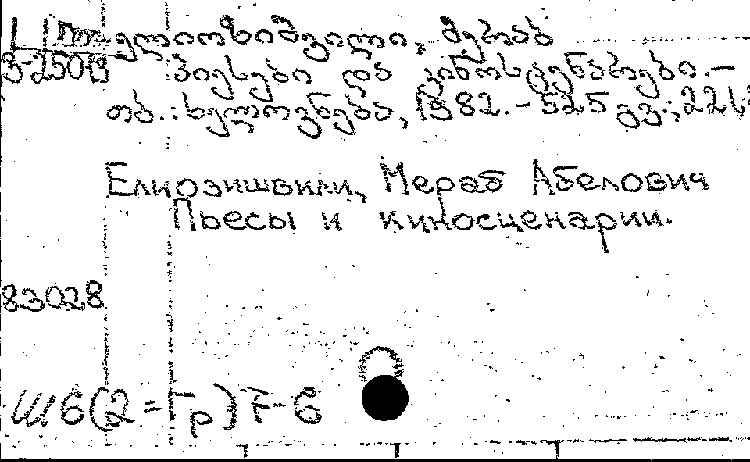 ელიოზიშვილი, მერაბ
პიესები და კინოსცენარები.–
თბ.: ხელოვნება, 1982.– 525 გვ.; 22
Елиозишвили, Мераб Абелович
Пьесы и киносценарии.
83028
Ш6(2=Гр)7-6